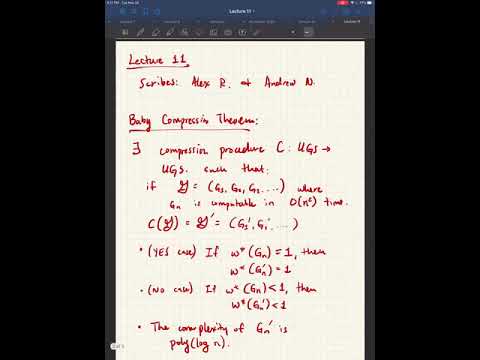 Lecture 11
Lecture 11
Scribes: Alex R. at Andrew N.
Baby Compression Theorem:
∃ compression procedure C: UGS →
UGS. such that:
if 𝒢 = (G₁, G₂, G₃ ....) where
Gn is computable in O(nᶜ) time.
C(𝒢) = 𝒢' = (G₁', G₂', ....)
• (YES case) If ω*(Gn) = 1, then
ω*(Gn') = 1
• (NO case) If ω*(Gn) < 1, then
ω*(Gn') < 1
• The complexity of Gn' is
poly(log n).